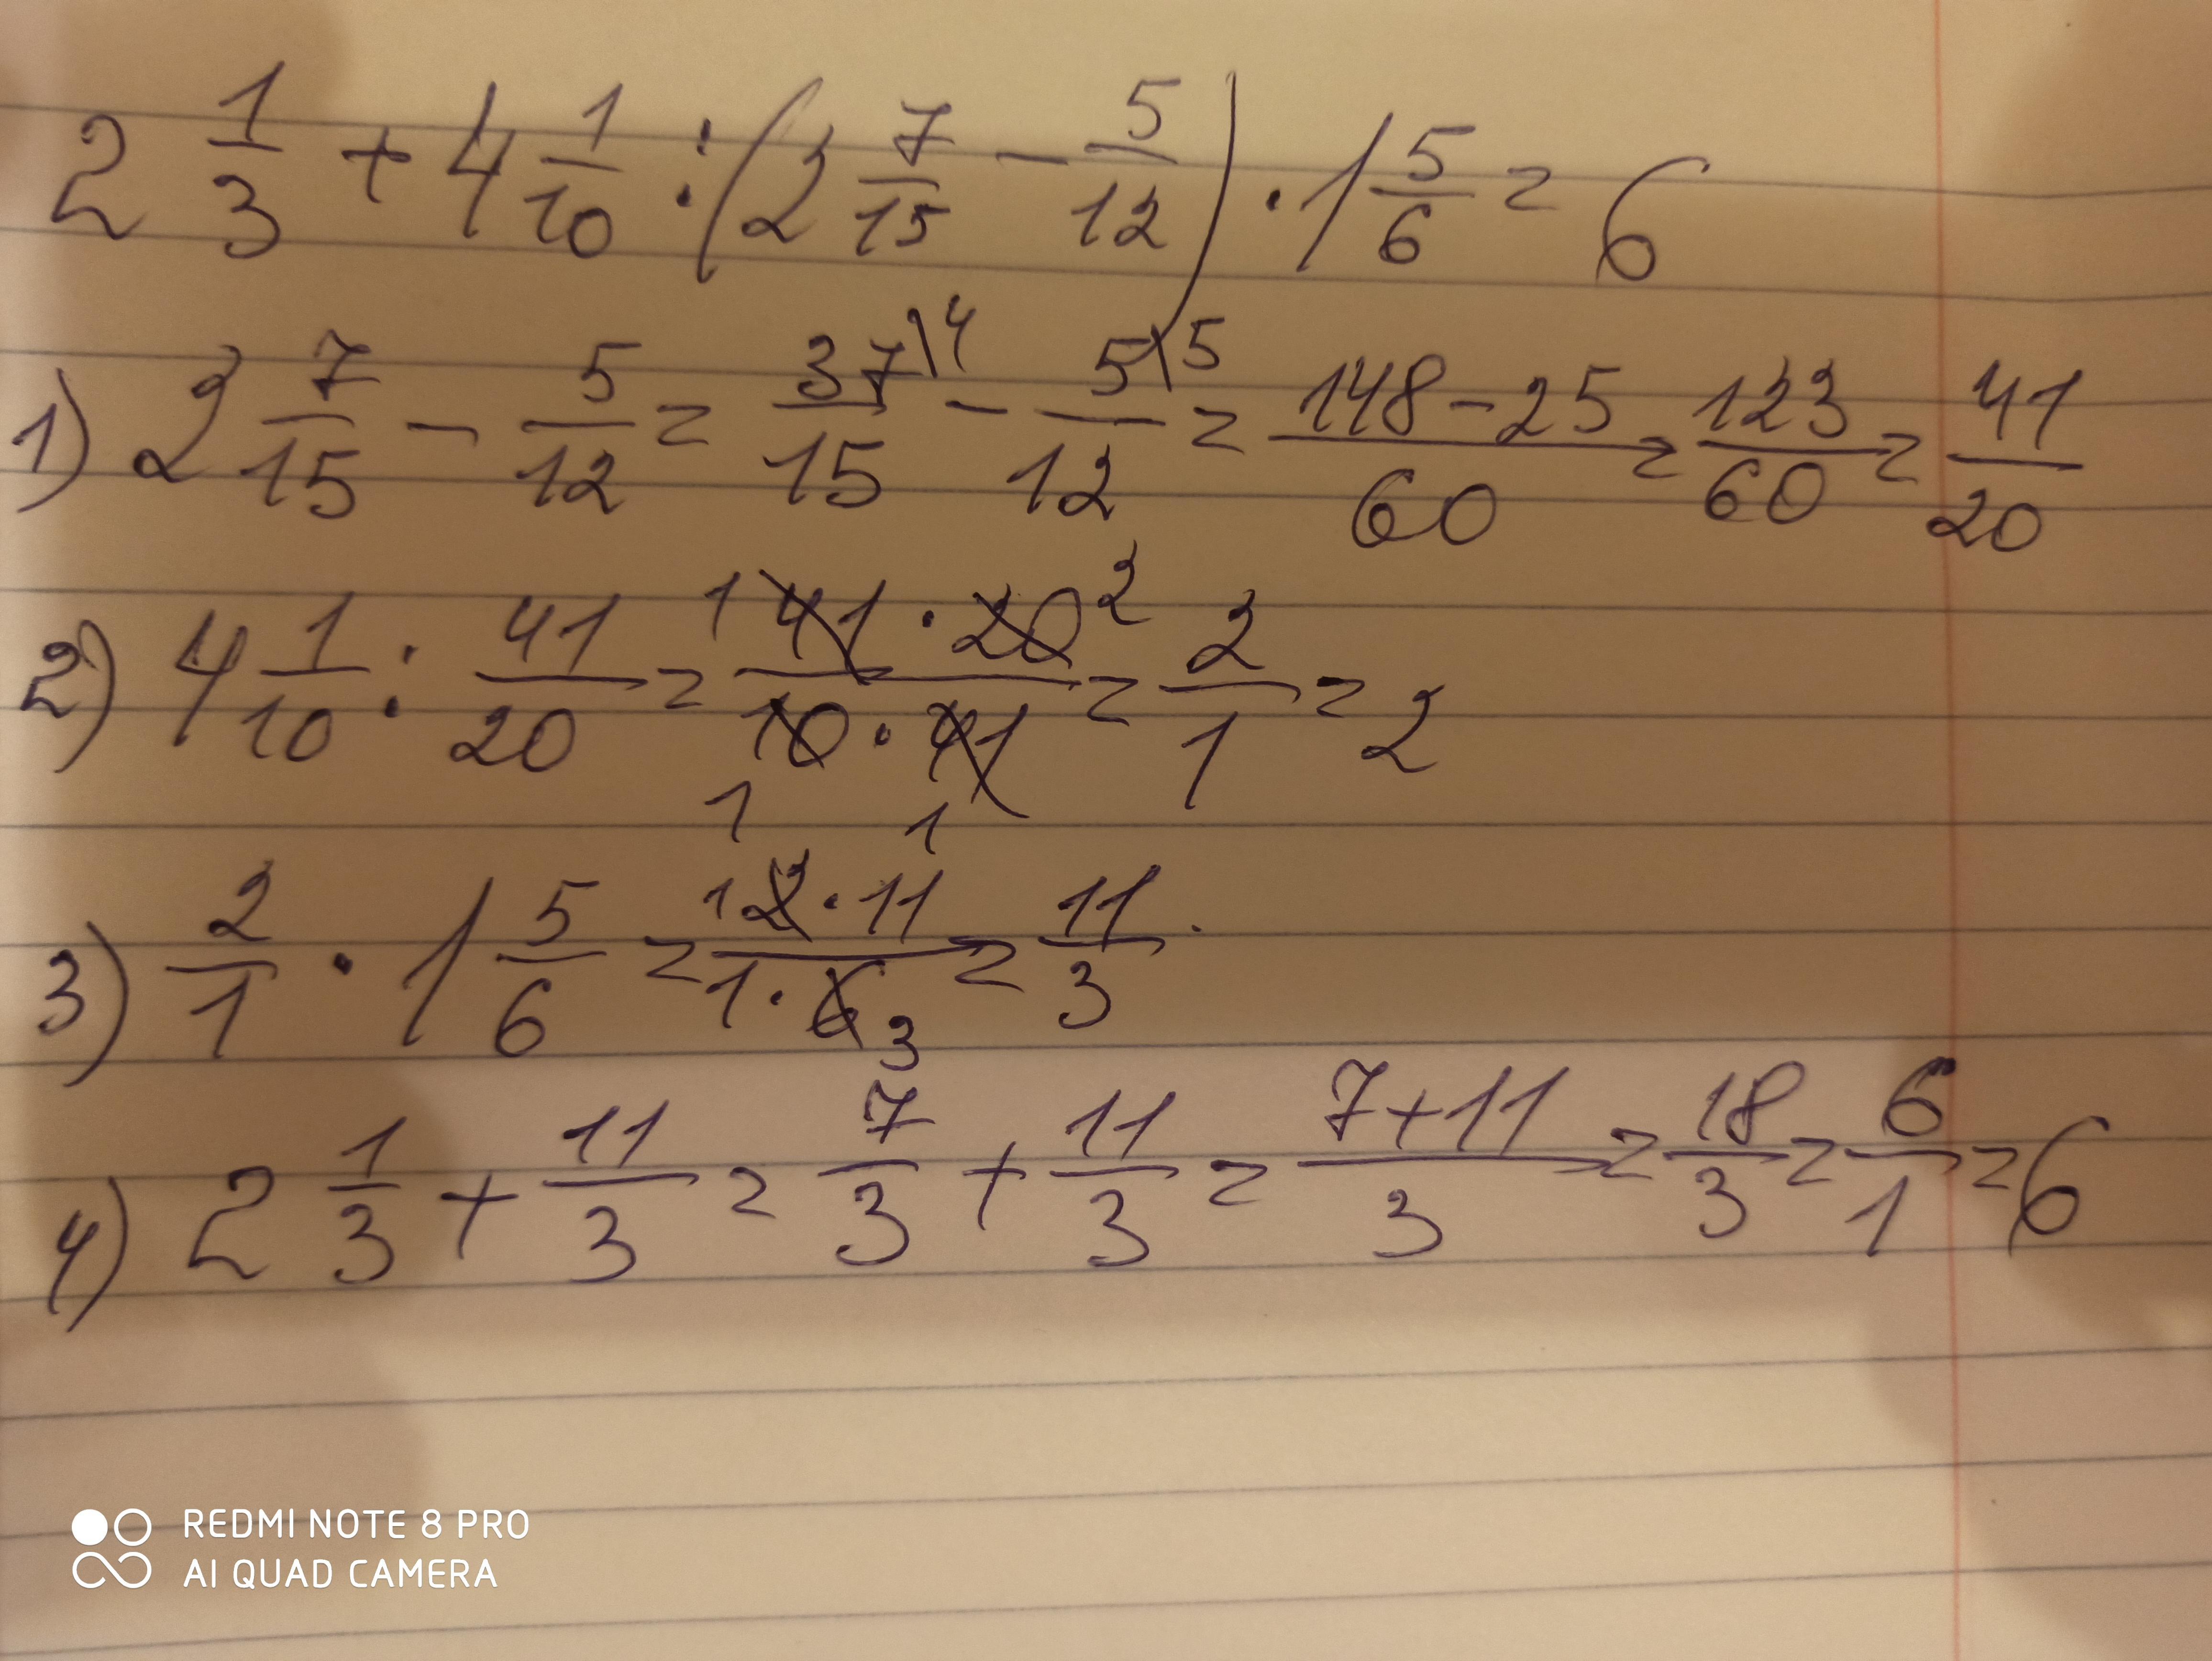 2 1/3 + 4 1/10 : (2 7/15 - 5/12) · 1 5/6 = 6
1) 2 7/15 - 5/12 = 37\4/15 - 5\5/12 = 148-25/60 = 123/60 = 41/20
2) 4 1/10 : 41/20 = 1 41 · 20 2/10 · 41 1 1 = 2/1 = 2
3) 2/1 · 1 5/6 = 1 2 · 11/1 · 6 3 = 11/3
4) 2 1/3 + 11/3 = 7/3 + 11/3 = 7+11/3 = 18/3 = 6/1 = 6
REDMI NOTE 8 PRO
AI QUAD CAMERA